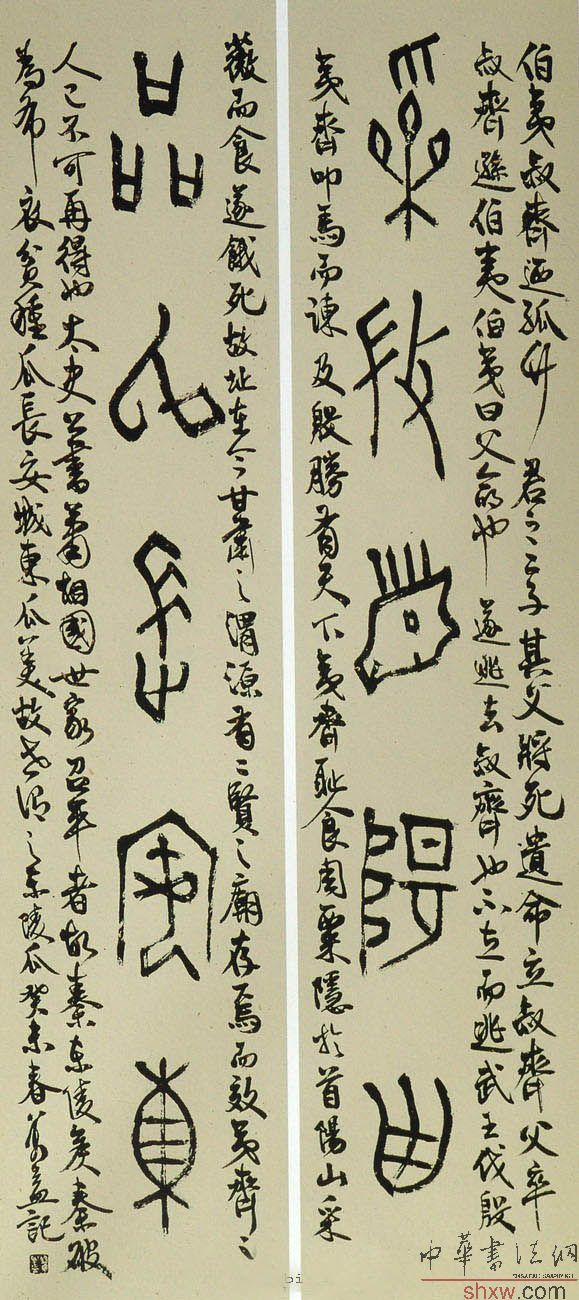 采薇首陽曲
伯夷叔齊迺孤竹君之二子其父將死遺命立叔齊父卒
叔齊遜伯夷伯夷曰父命也遂逃去叔齊也不立而逃武王伐殷
夷齊叩馬而諫及殷勝有天下夷齊恥食周粟隱於首陽山采
薇而食遂餓死故址在今甘肅之渭源有二賢之廟存焉而效夷齊之
品瓜長安東
人已不可再得也太史公書蕭相國世家召平者故秦東陵侯秦破
為布衣貧種瓜長安城東瓜美故世謂之東陵瓜癸未春記
中華書法網
shxw.com